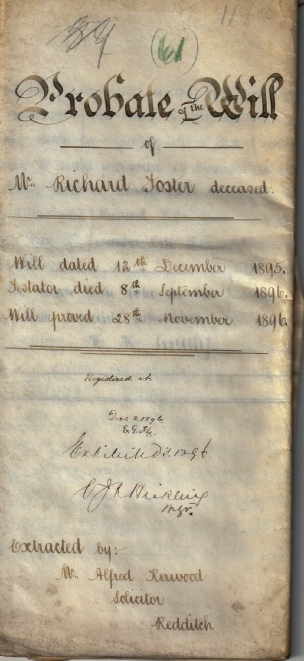 61
Probate of the Will
of
Mr. Richard Foster deceased.
Will dated 12th December 1895.
Testator died 8th September 1896.
Will proved 28th November 1896.
Registered at
Dec 2. 1896
Exhibited
1896
C J R
Extracted by:-
Mr. Alfred Kerwood
Solicitor
Redditch